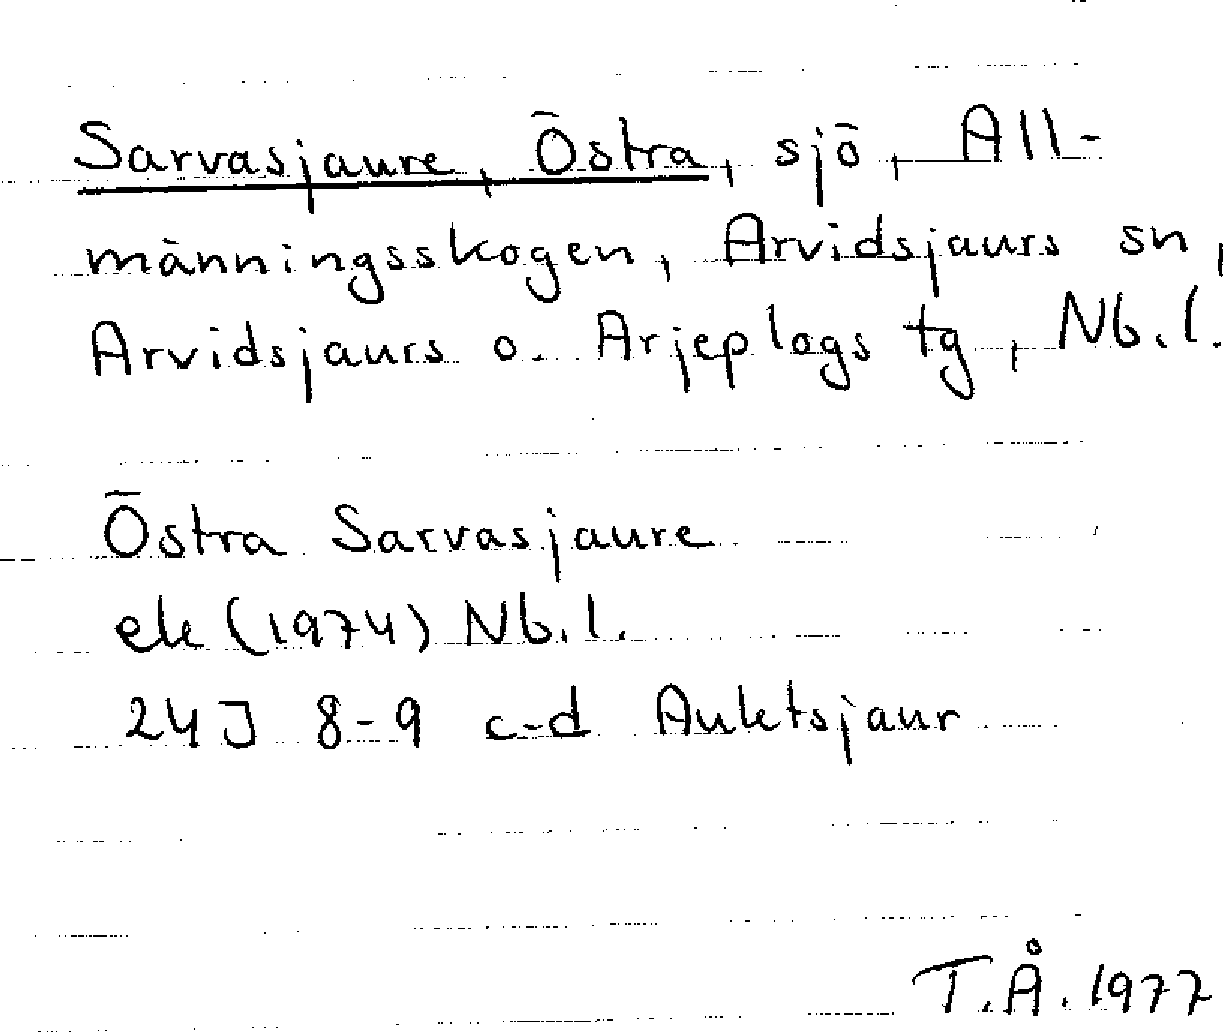 Sarvasjaure, Östra, sjö, All-
männingsskogen, Arvidsjaurs sn,
Arvidsjaurs o. Arjeplogs tg, Nb.l.
Östra Sarvasjaure
ek (1974) Nb.l.
24J 8-9 c-d Auktsjaur
T.Å. 1977